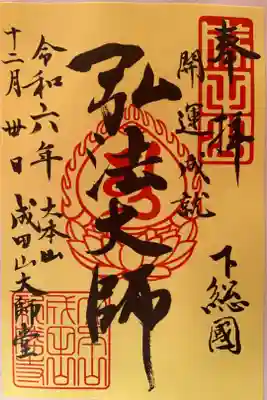 奉拝
開運成就
下総國
弘法大師
大本山
成田山大師堂
令和六年
十二月卅日